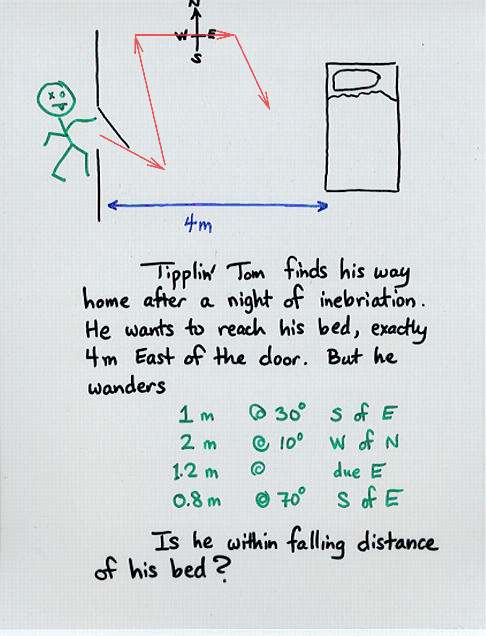 N
W E
S
4m
Tipplin' Tom finds his way
home after a night of inebriation.
He wants to reach his bed, exactly
4m East of the door. But he
wanders
1 m @ 30° S of E
2 m @ 10° W of N
1.2 m @ due E
0.8 m @ 70° S of E
Is he within falling distance
of his bed?